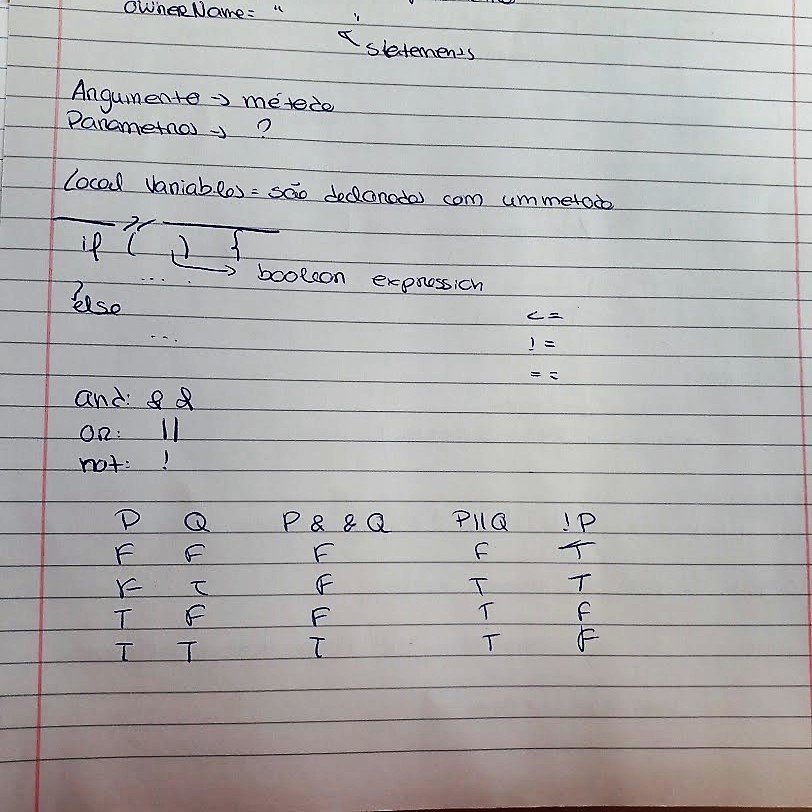 OwnerName = " "
statements
Argumento → método
Parametros → ?
Local Variables = são declarados com um metodo
if ( ) {
.... → boolean expression
}else
...
<=
!=
==
and: &&
or: ||
not: !
P Q P && Q P||Q !P
F F F F T
F T F T T
T F F T F
T T T T F